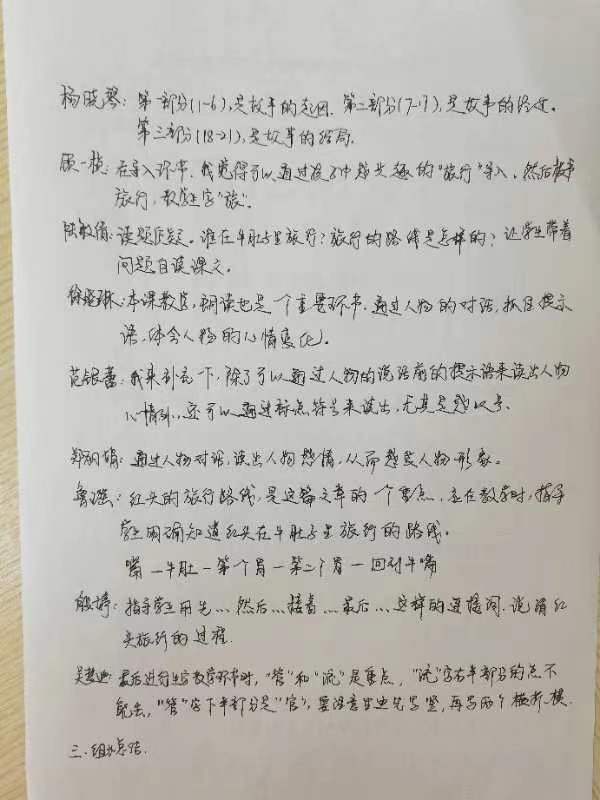 杨晓琴：第一部分(1-6),是故事的起因. 第二部分(7-17),是故事的经过.
第三部分(18-21),是故事的结局.
一桢：在导入环节，我觉得可以通过孩子们感兴趣的“旅行”导入，然后板书
旅行，教生字“旅”.
陆敏倩：读题质疑. 谁在牛肚子里旅行？旅行的路线是怎样的？让学生带着
问题自读课文。
徐琳：本课教学，朗读也是一个重要环节. 通过人物的对话，抓住提示
语，体会人物的心情变化.
范银：我来补充一下，除了可以通过人物的说话前的提示语来读出人物
心情外，还可以通过标点符号来读出，尤其是感叹号.
郑娟：通过人物对话，读出人物感情，从而感受人物形象。
鲁：红头的旅行路线，是这篇文章的一个重点，在教学时，指导
学生明确知道红头在牛肚子里旅行的路线。
嘴—牛肚—第一个胃—第二个胃—回到牛嘴
殷婷：指导学生用先…然后…接着…最后…这样的连接词，说清红
头旅行的过程.
吴：最后进行生字教学环节时，“管”和“流”是重点，“流”字右半部分的点不
能丢，“管”字下半部分是“官”，要注意先写竖，再写两个横折、横.
三.组长总结.